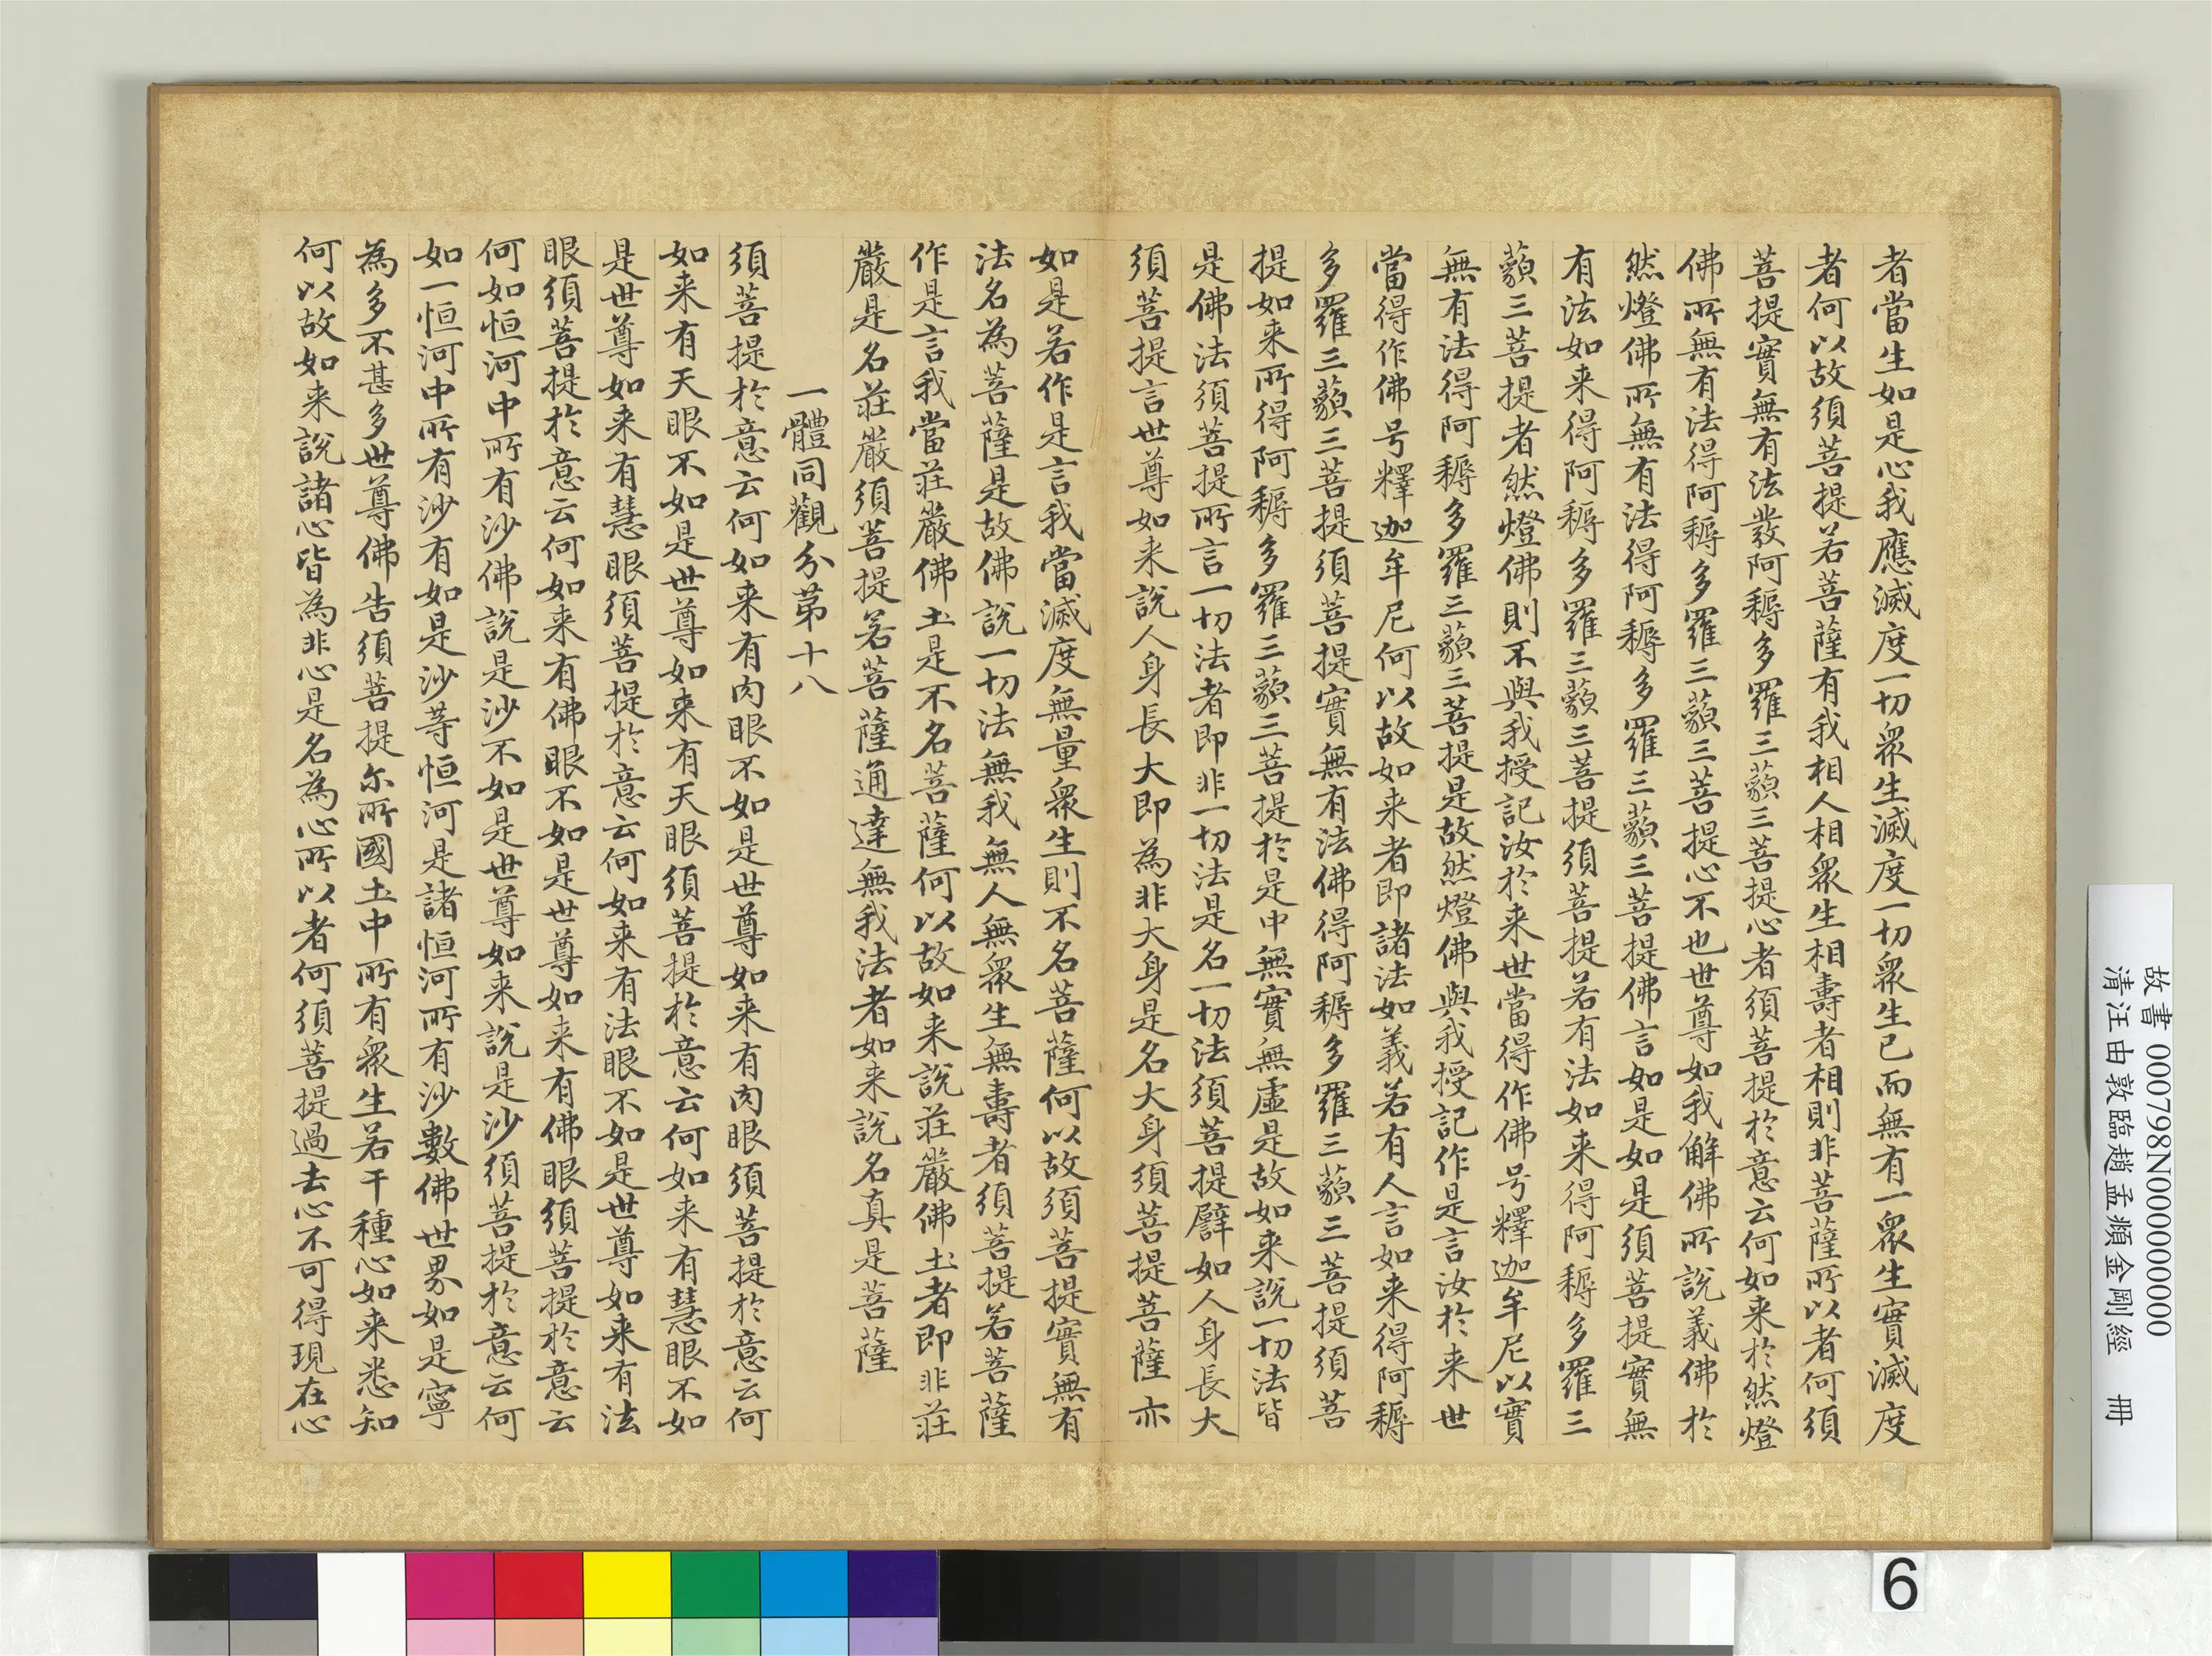 者當生如是心我應滅度一切眾生滅度一切眾生已而無有一眾生實滅度
者何以故須菩提若菩薩有我相人相眾生相壽者相則非菩薩所以者何須
菩提實無有法發阿耨多羅三藐三菩提心者須菩提於意云何如来於然燈
佛所無有法得阿耨多羅三藐三菩提心不也世尊如我解佛所說義佛於
然燈佛所無有法得阿耨多羅三藐三菩提佛言如是如是須菩提實無
有法如来得阿耨多羅三藐三菩提須菩提若有法如来得阿耨多羅三
藐三菩提者然燈佛則不與我授記汝於来世當得作佛号釋迦牟尼以實
無有法得阿耨多羅三藐三菩提是故然燈佛與我授記作是言汝於来世
當得作佛号釋迦牟尼何以故如来者即諸法如義若有人言如来得阿耨
多羅三藐三菩提須菩提實無有法佛得阿耨多羅三藐三菩提須菩
提如来所得阿耨多羅三藐三菩提於是中無實無虛是故如来說一切法皆
是佛法須菩提所言一切法者即非一切法是名一切法須菩提譬如人身長大
須菩提言世尊如来說人身長大即為非大身是名大身須菩提菩薩亦
如是若作是言我當滅度無量眾生則不名菩薩何以故須菩提實無有
法名為菩薩是故佛說一切法無我無人無眾生無壽者須菩提若菩薩
作是言我當莊嚴佛土是不名菩薩何以故如来說莊嚴佛土者即非莊
嚴是名莊嚴須菩提若菩薩通達無我法者如来說名真是菩薩
一體同觀分第十八
須菩提於意云何如来有肉眼不如是世尊如来有肉眼須菩提於意云何
如来有天眼不如是世尊如来有天眼須菩提於意云何如来有慧眼不如
是世尊如来有慧眼須菩提於意云何如来有法眼不如是世尊如来有法
眼須菩提於意云何如来有佛眼不如是世尊如来有佛眼須菩提於意云
何如恒河中所有沙佛說是沙不如是世尊如来說是沙須菩提於意云何
如一恒河中所有沙有如是沙等恒河是諸恒河所有沙數佛世界如是寧
為多不甚多世尊佛告須菩提尔所國土中所有眾生若干種心如来悉知
何以故如来說諸心皆為非心是名為心所以者何須菩提過去心不可得現在心
故書 000798N000000000
清汪由敦臨趙孟頫金剛經 冊
6